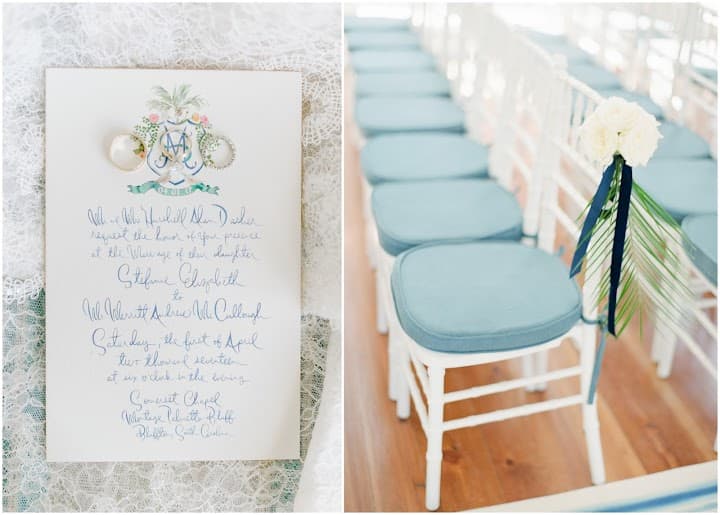 M
04·01·17
Mr & Mrs Marshall Alan Dasher
request the honor of your presence
at the Marriage of their daughter
Stefanie Elizabeth
to
Mr. Merritt Andrew McCullough
Saturday, the first of April
two thousand seventeen
at six o'clock in the evening
Somerset Chapel
Montage Palmetto Bluff
Bluffton, South Carolina